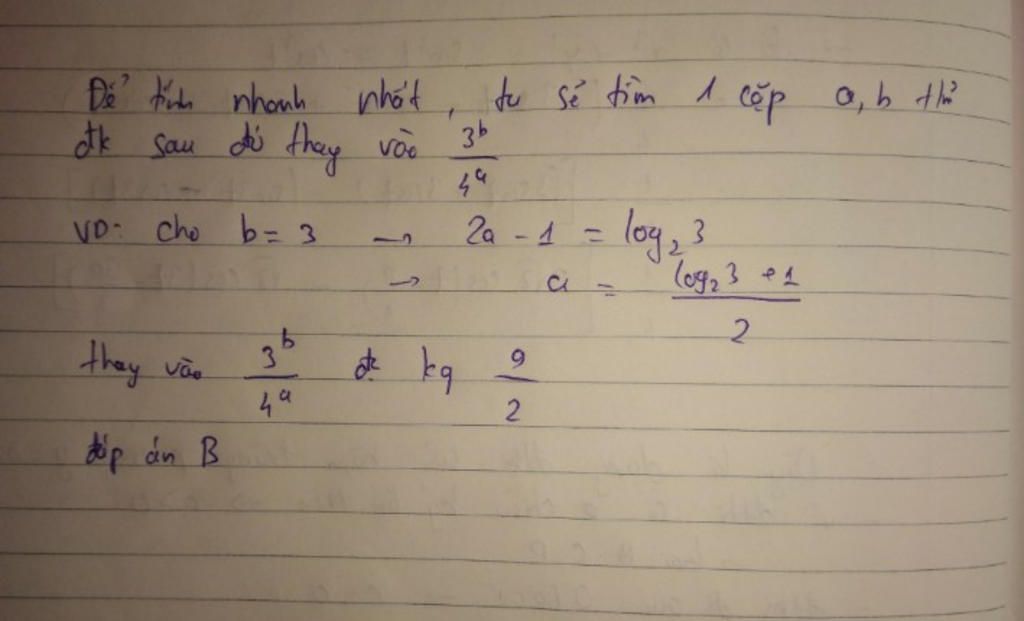 Để tính nhanh nhất, ta sẽ tìm 1 cặp a, b thỏ
đk sau đó thay vào 3^b / 4^a
VD: cho b = 3 → 2a - 1 = log₂3
→ a = (log₂3 + 1) / 2
thay vào 3^b / 4^a đc kq 9 / 2
đáp án B